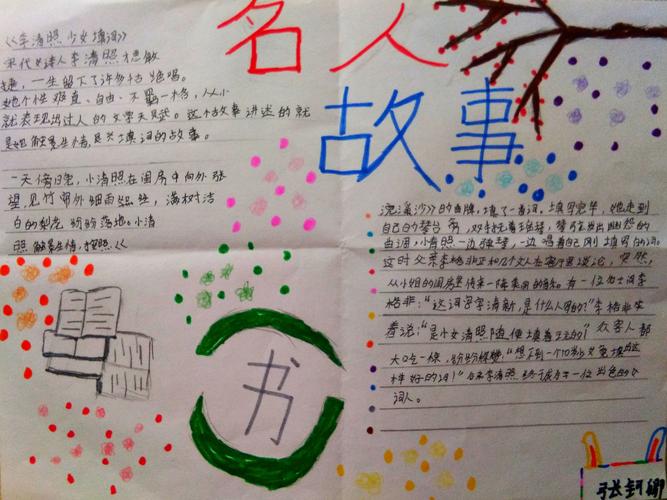 名人
故事
《李清照少女填词》
宋代女诗人李清照才思敏
捷,一生留下了许多千古绝唱。
她个性难直、自由、不羁一格,从小
就表现出过人的文学天赋。这个故事讲述的就
是她触景生情,即兴填词的故事。
一天傍晚,小清照在闺房中向外张
望,见竹帘外细雨绵绵,满树洁
白的梨花纷纷落地。小清
照触景生情,按照《
浣溪沙》的曲牌,填了一首词。填写完毕,她走到
自己的琴台旁,双手抚着琴弦,琴声发出幽怨的
曲调,小清照一边弹琴,一边唱着自己刚填写的词。
这时父亲李格非正和几个文人在客厅里谈论,突然,
从小姐的闺房里传来一阵美妙的音乐。有一位女士问李
格非:"这词写字清新,是什么人写的?"李格非笑
着说:"是小女清照随便填着玩的!"众客人都
大吃一惊,纷纷称赞:"想不到一个10岁少女竟填出这
样好的词!"后来李清照终于成为了一位出色的女
词人。
书
张